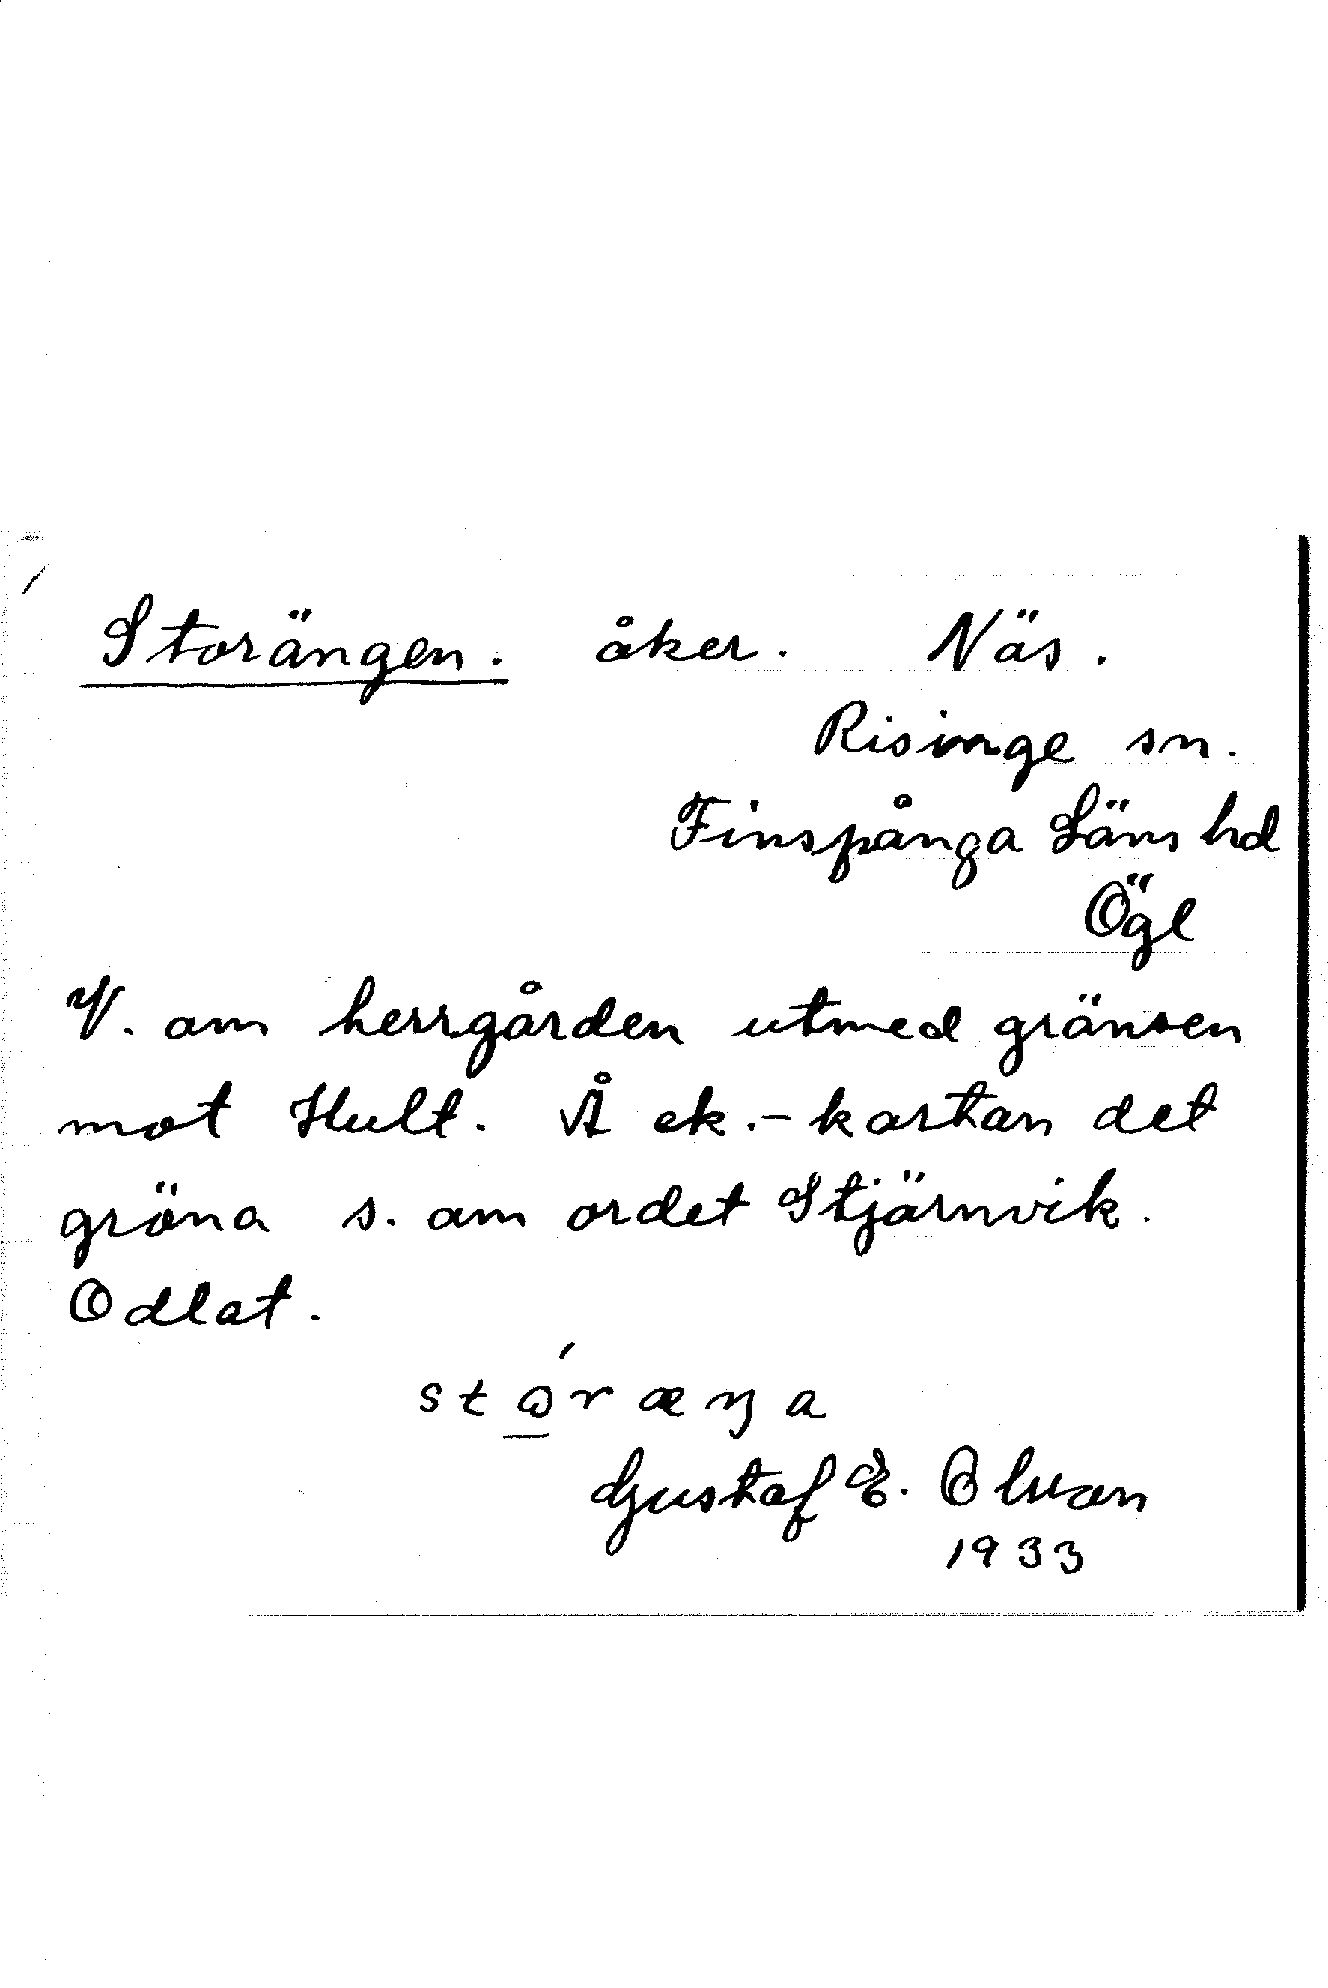 Storängen. åker. Näs.
Risinge sn.
Finspånga Läns hd
Ögl
V. om herrgården utmed gränsen
mot Hult. Å ek.-kartan det
gröna s. om ordet Stjärnvik.
Odlat.
Gustaf E. Olson
1933